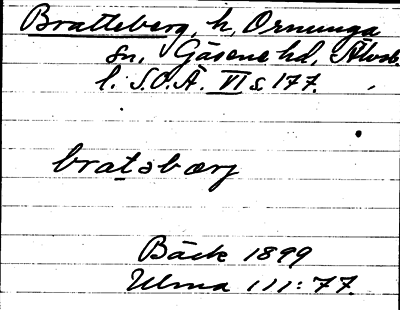 Bratteberg, h, Ornunga
sn, Gäsene hd, Älvsb.
l. S.O.Ä. VI s. 177.
bratsbærj
Bäck 1899
Ulma 111:77.